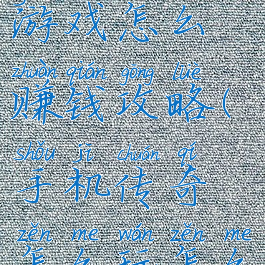 游戏怎么
zhuàn qián gōng lüè
赚钱攻略(
shǒu jī chuán qí
手机传奇
zěn me wán zěn me
怎么玩怎么